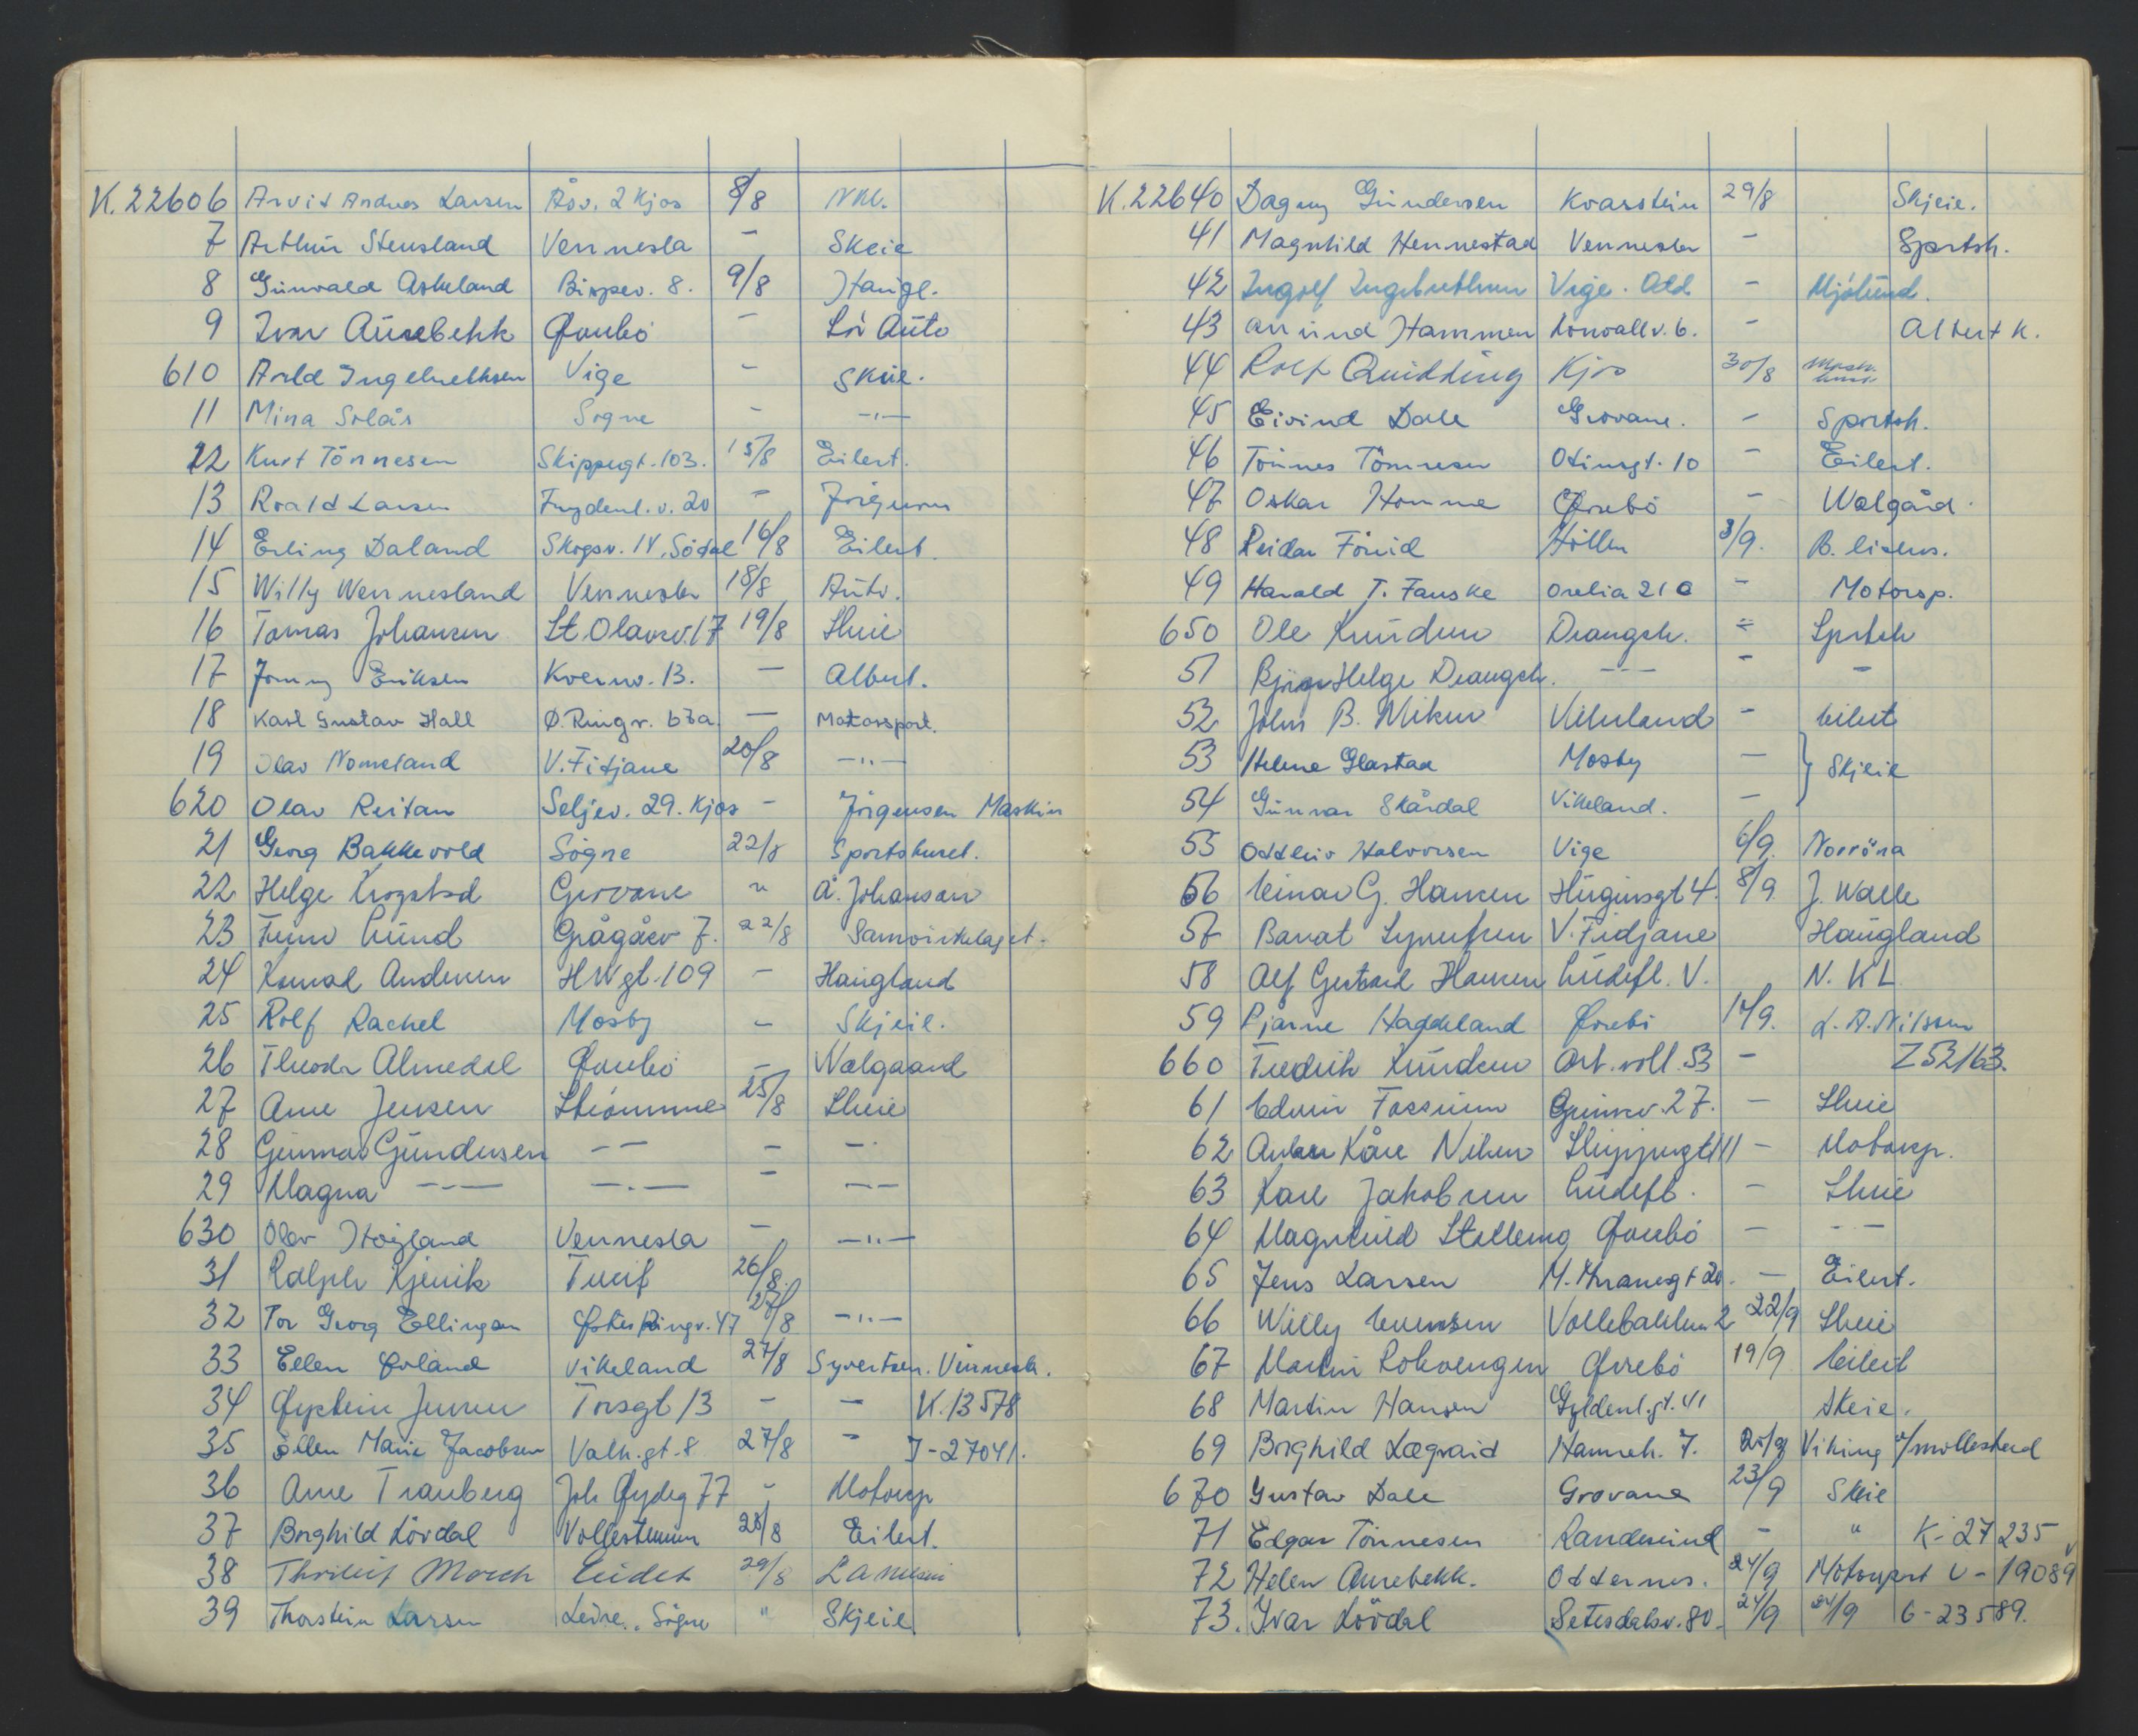 K.22606 Arvid Andreas Larsen Åsv. 2 Kjos 8/8 NKL.
7 Arthur Stensland Vennesla - Skeie
8 Gunvald Askeland Bispev. 8. 9/8 Haugl.
9 Ivar Aurebekk Øvrebö - Auto
610 Ingebrethsen Vige - Skeie.
11 Mina Solås Sogne - -"-
22 Kurt Tönnesen Skippergt. 103. 15/8 Eilert.
13 Roald Larsen Frydenl. v. 20 - Jörgensen
14 Erling Daland Skogsv. 14, Södal 16/8 Eilert.
15 Willy Wennesland Vennesla 18/8 Auto.
16 Tomas Johansen St. Olavsv. 17 19/8 Skeie
17 Jonny Eriksen Kvernv. 13. - Albert.
18 Karl Gustav Hall Ø. Ringv. 67a - Motorsport.
19 Olav Nomeland V. Fidjane 20/8 -"-
620 Olav Reitan Seljev. 29. Kjos - Jörgensen Maskin
21 Georg Bakkevold Sögne 22/8 Sportshuset.
22 Helge Krogstad Grovane " Å. Johanson
23 Lund Grågåsv 7. 22/8 Samvirkelaget.
24 Konrad Andersen H W gt. 109 - Haugland
25 Rolf Rachel Mosby - Skjeie.
26 Theodor Almedal Øvrebö - Walgaard
27 Arne Jensen Strömme 25/8 Skeie
28 Gunnar Gundersen -- - -
29 Magna --- -.- - --
630 Olav Högland Vennesla - -"-
31 Ralph Kjevik Tveit 26/8.
32 Tor Georg Ellingsen Østre Ringv. 47 27/8 -"-
33 Ellen Øvland Vikeland 27/8 Syvertsen. Vennesla.
34 Øystein Jensen Torsgt 13 - - K.13578
35 Ellen Marie Jacobsen Valh. gt. 8 27/8 - J-27041.
36 Arne Tranberg Joh Øydeg 77 - Motorsp
37 Borghild Lövdal Vollestemmen 28/8 Eilert.
38 Thorleif Morch Eidet 29/8 L A Nilssen
39 Thorstein Larsen Sögne " Skjeie
K.22640 Dagny Gundersen Kvarstein 29/8 Skjeie.
41 Magnhild Hennestad Vennesla - Sportsh.
42 Ingolf Ingebrethsen Vige. Odd - Mjölund.
43 Hammen 6. - Albert K.
44 Rolf Quidding Kjos 30/8
45 Eivind Dale Grovane. - Sportsh.
46 Tönnes Tönnesen Odinsgt. 10 - Eilert.
47 Oskar Homme Øvrebö - Walgård.
48 Reidar Höllen 3/9. B. lisens.
49 Harald T. Fauske 21 - Motorsp.
650 Ole Knudsen Drangsh. = Sportsh
51 Helge Drangsh. --- - -
52 John B. Vikeland - Eilert
53 Helene Glastad Mosby - } Skjeie
54 Gunnar Skårdal Vikeland. -
55 Oddleiv Halvorsen Vige 6/9. Norröna
56 Einar G. Hansen Huginsgt 4. 8/9. J. Walle
57 V. Fidjane Haugland
58 Alf Gerhard Hansen Lindefl. V. N. K L
59 Bjarne Haddeland Øvrebö 14/9. L. A. Nilssen
660 Fredrik Knudsen Art. voll. 53 - Z52163.
61 Edvin Fossum Grimsv. 27. - Skeie
62 Anders Kåre Nilsen Skippergt 111 - Motorsp.
63 Kare Jakobsen Lindefl. - Skeie
64 Magnhild Stallemo Øvrebö - - -
65 Jens Larsen M. Thranesgt 20. - Eilert.
66 Willy Evensen Vollebakken 2 22/9 Skeie
67 Martin Øvrebö 19/9 Eilert
68 Martin Hansen Gyldenl. gt. 41 Skeie.
69 Borghild Lægraid Hamreh. 7. Viking
670 Gustav Dale Grovane 23/9 Skeie
71 Edgar Tönnesen Randesund - " K-27235
72 Helen Aurebekk. Oddernes. 24/9 Motorsport 19089
73. Yvar Lövdal Setesdalsv. 80. 24/9 24/9 G-23589.